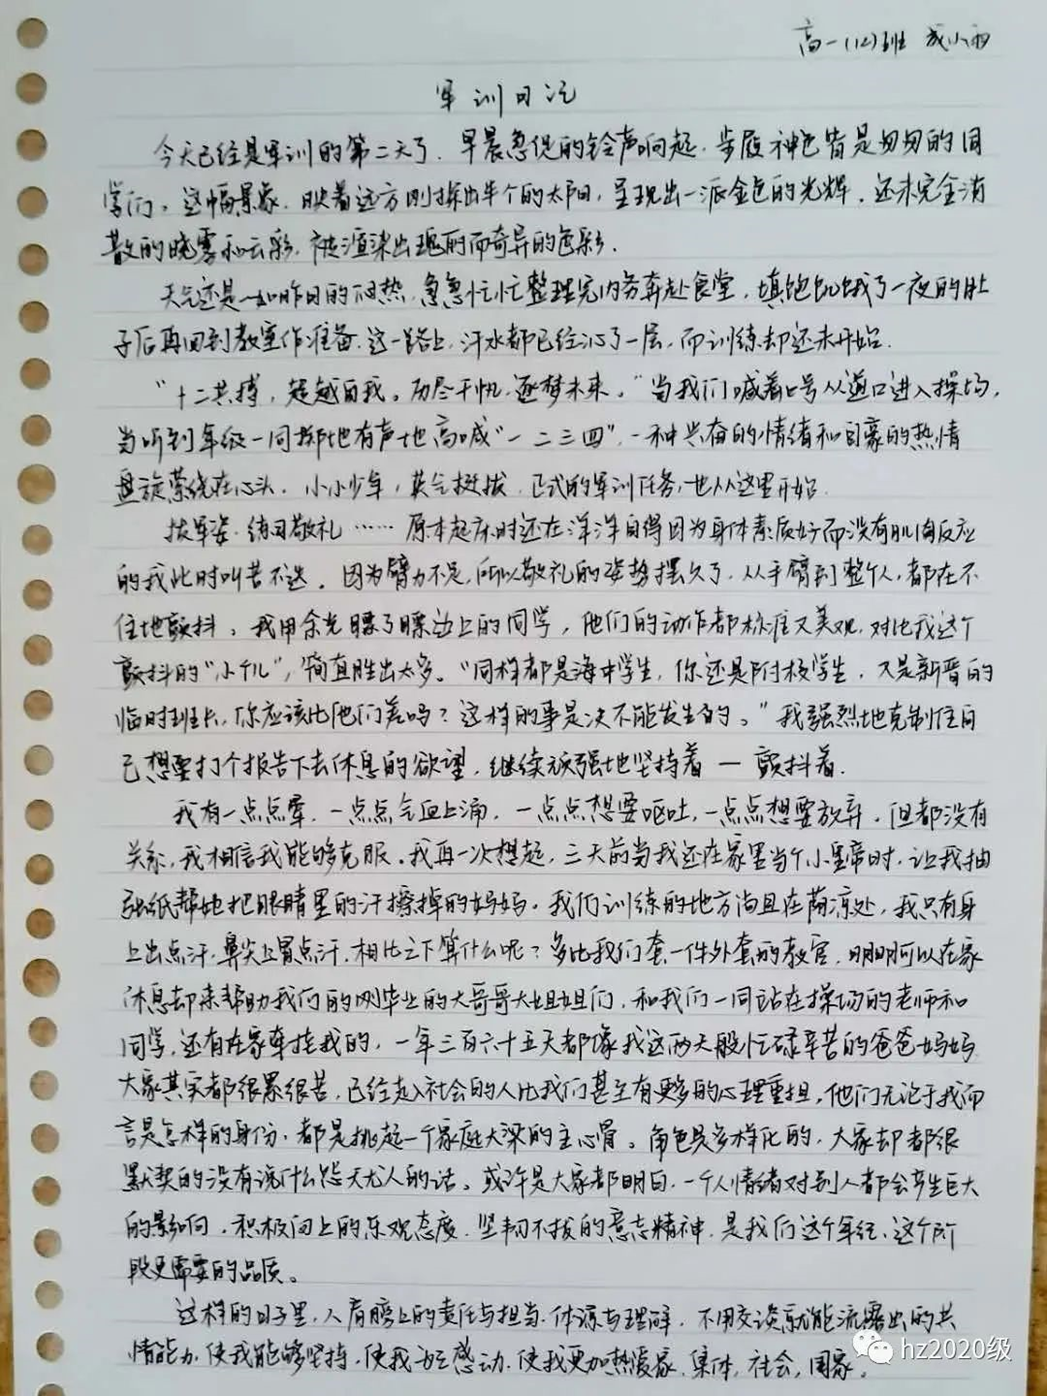 高一(12)班 成小雨
军训日记
今天已经是军训的第二天了。早晨急促的铃声响起,步履神色皆是匆匆的同
学们。这幅景象,映着远方刚探出半个的太阳,呈现出一派金色的光辉。还未完全消
散的晓雾和云彩,被渲染出瑰丽而奇异的色彩。
天气还是一如昨日的闷热,急急忙忙整理完内务奔赴食堂,填饱饥饿了一夜的肚
子后再回到教室作准备。这一路上,汗水都已经沁了一层,而训练却还未开始。
“十二共搏,超越自我。历尽千帆,逐梦未来。”当我们喊着口号从道口进入操场,
当听到年级一同掷地有声地高喊“一二三四”,一种兴奋的情绪和自豪的热情
盘旋萦绕在心头。小小少年,英气挺拔,正式的军训任务,也从这里开始。
拔军姿,练习敬礼……原本起床时还在洋洋自得因为身体素质好而没有肌肉反应
的我此时叫苦不迭。因为臂力不足,所以敬礼的姿势摆久了,从手臂到整个人,都在不
住地颤抖。我用余光瞟了瞟边上的同学,他们的动作都标准又美观,对比我这个
颤抖的“小个儿”,简直胜出太多。“同样都是海中学生,你还是附校学生,又是新晋的
临时班长,你应该比他们差吗?这样的事是决不能发生的。”我强烈地克制住自
己想要打个报告下去休息的欲望,继续顽强地坚持着—颤抖着。
我有一点点晕,一点点气血上涌,一点点想要呕吐,一点点想要放弃。但都没有
关系,我相信我能够克服。我再一次想起,三天前当我还在家里当个小皇帝时,让我抽
张纸帮她把眼睛里的汗擦掉的妈妈。我们训练的地方尚且在荫凉处,我只有身
上出点汗,鼻尖上冒点汗,相比之下算什么呢?多比我们套一件外套的教官,明明可以在家
休息却来帮助我们的刚毕业的大哥哥大姐姐们,和我们一同站在操场的老师和
同学,还有在家牵挂我的,一年三百六十五天都像我这两天般忙碌辛苦的爸爸妈妈
大家其实都很累很苦,已经走入社会的人比我们甚至有更多的心理重担,他们无论于我而
言是怎样的身份,都是挑起一个家庭大梁的主心骨。角色是多样化的,大家却都很
默契的没有说什么怨天尤人的话。或许是大家都明白,一个人情绪对别人都会产生巨大
的影响,积极向上的乐观态度,坚韧不拔的意志精神,是我们这个年纪、这个阶
段更需要的品质。
这样的日子里,人肩膀上的责任与担当,体谅与理解,不用交谈就能流露出的共
情能力,使我能够坚持,使我 感动,使我更加热爱家、集体、社会、国家。
hz2020级